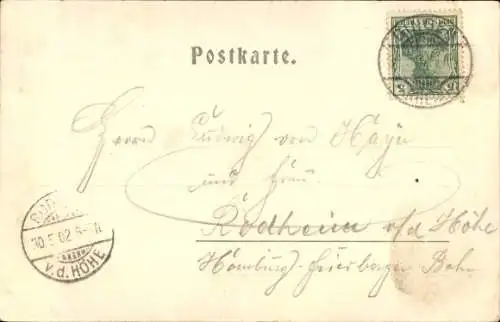 Postkarte.
Herrn Ludwig von Hayn
und Frau
Rodheim v/d Höhe
Homburg-Friedberger Bahn
30.5.02
v. d. HÖHE